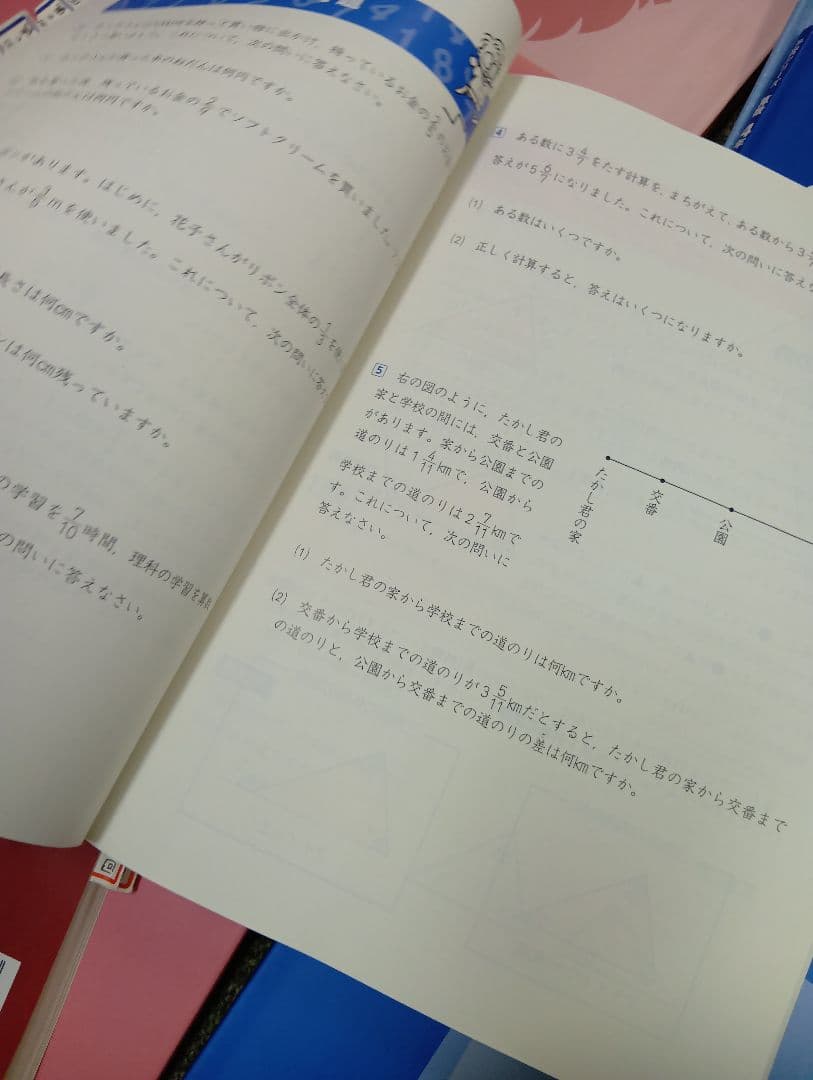 ているお金の
でソフトクリームを買いました。
があります。はじめに、花子さんがリボン全体の1/3を使
さんが mを使いました。これについて、次の問いに答
長さは何cmですか。
ンは何cm残っていますか。
の学習を7/10時間，理科の学習を算数
の問いに答えなさい。
4 ある数に3 4/7をたす計算を，まちがえて，ある数から3
答えが5 6/7になりました。これについて，次の問いに答えな
(1) ある数はいくつですか。
(2) 正しく計算すると，答えはいくつになりますか。
5 右の図のように，たかし君の
家と学校の間には，交番と公園
があります。家から公園までの
道のりは1 4/11kmで，公園から
学校までの道のりは2 7/11kmで
す。これについて，次の問いに
答えなさい。
たかし君の家
交番
公園
(1) たかし君の家から学校までの道のりは何kmですか。
(2) 交番から学校までの道のりが3 5/11kmだとすると，たかし君の家から交番まで
の道のりと，公園から交番までの道のりの差は何kmですか。